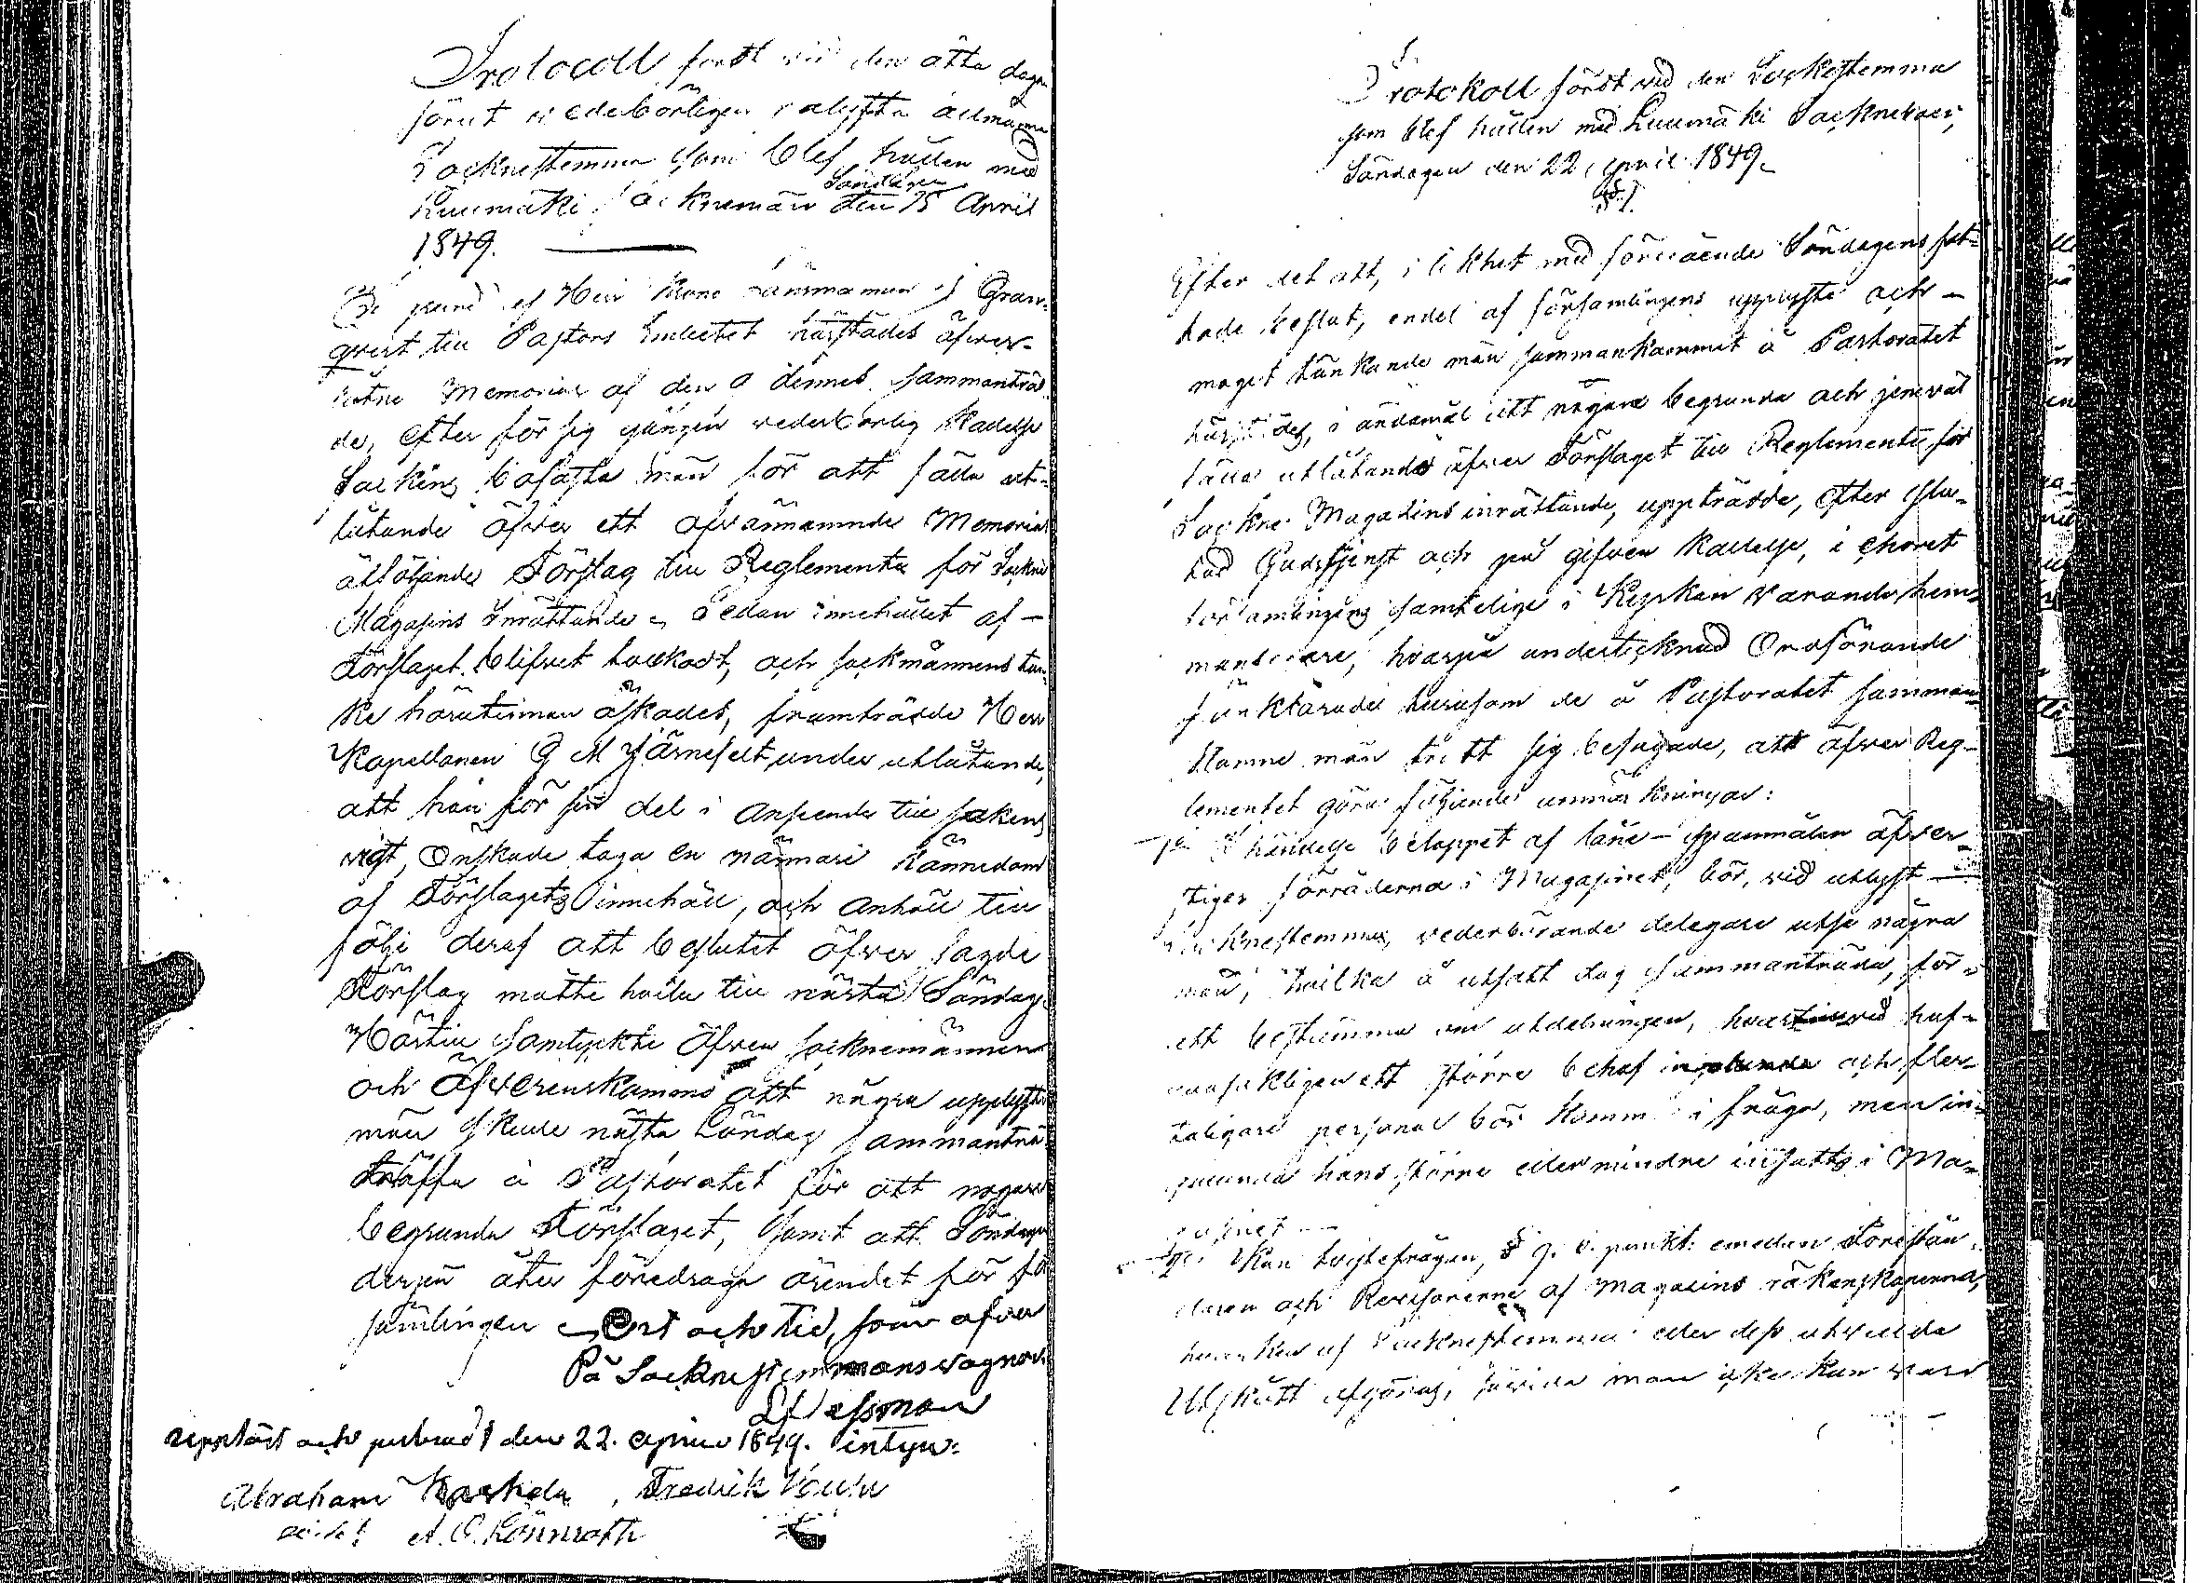 Protocoll fördt vid den åtta dagar
förut vederbörligen pålysta allmänna
Socknestemma som blef hållen med
Luumäki Socknemän Söndagen den 15 April
1849.
På grund af Herr Krono Länsmannen J Gran-
qvist till Pastors Embetet härstädes öfver-
Memorial af den 9 dennes sammanträd-
de, efter för sig gången vederbörlig kallelse
Sockens bofasta män för att fälla ut-
låtande öfver ett ofvannämnde Memorial
åtföljande Förslag till Reglemente för Sockne
Magasins Inrättande. Sedan innehållet af
Förslaget blifvet tolkadt, och sockmännens tan-
ke häruti äskades, framträdde Herr
Kapellanen G M Järnefelt, under utlåtande,
att han för sin del i anseende till sakens
vigt, önskade taga en närmare kännedom
af Förslagets innehåll, och anhöll till
följe deraf att beslutet öfver sagde
Förslag måtte hvila till nästa Söndag.
Härtill samtyckte äfven socknemännen
och öfverenskoms att några upplysta
män skulle nästa Söndag sammanträ
träffa å Pastoratet för att nogare
begrunda Förslaget, samt att Söndagen
derpå åter föredraga ärendet för för
samlingen. Ort och tid, som ofvan
På Socknestemmans vägnar
uppläst och justerad den 22. April 1849. intyga:
Abraham , Fredrik
A. O. Lönnroth
Protokoll fördt vid den Sockestemma
som blef hållen med Luumäki Socknеboer,
Söndagen den 22 April 1849.
§ 1.
Efter det att, i likhet med föregående Söndagens fat-
tade beslut, endel af församlingens upplyste och
moget tänkande män sammankommit å Pastoratet
härstädes, i ändamål att nogare begrunda och
fälla utlåtande öfver Förslaget till Reglemente för
Sockne Magasins inrättande, uppträdde, efter slu-
tad Gudstjenst och på gifven kallelse, i choret
församlingens samtelige i Kyrkan varande hem-
mansegare, hvarpå undertecknad Ordförande
förklarade hurusom de å Pastoratet samman-
komne män trott sig befogade, att öfver Reg-
lementet göra följande anmärkningar:
I händelse beloppet af låne-anmälan öfver-
stiger förråderna i Magasinet, bör, vid utlyst
Socknestemma, vederbörande delegare utse några
män, hvilka å utsatt dag sammanträda, för
att bestämma om utdelningen, hvarvid huf-
vudsakligen ett större behof och fler-
taligare personal bör komma i fråga, men in-
galunda hans större eller mindre insatts i Ma-
gasinet.
Kan tvistefrågan, § 9. punkt. emedan FöreStån-
daren och Revisorerne af Magasins räkenskaperna,
af Socknestemma eller dess utvalda
Utskått afgöras, såvida man icke kan vara